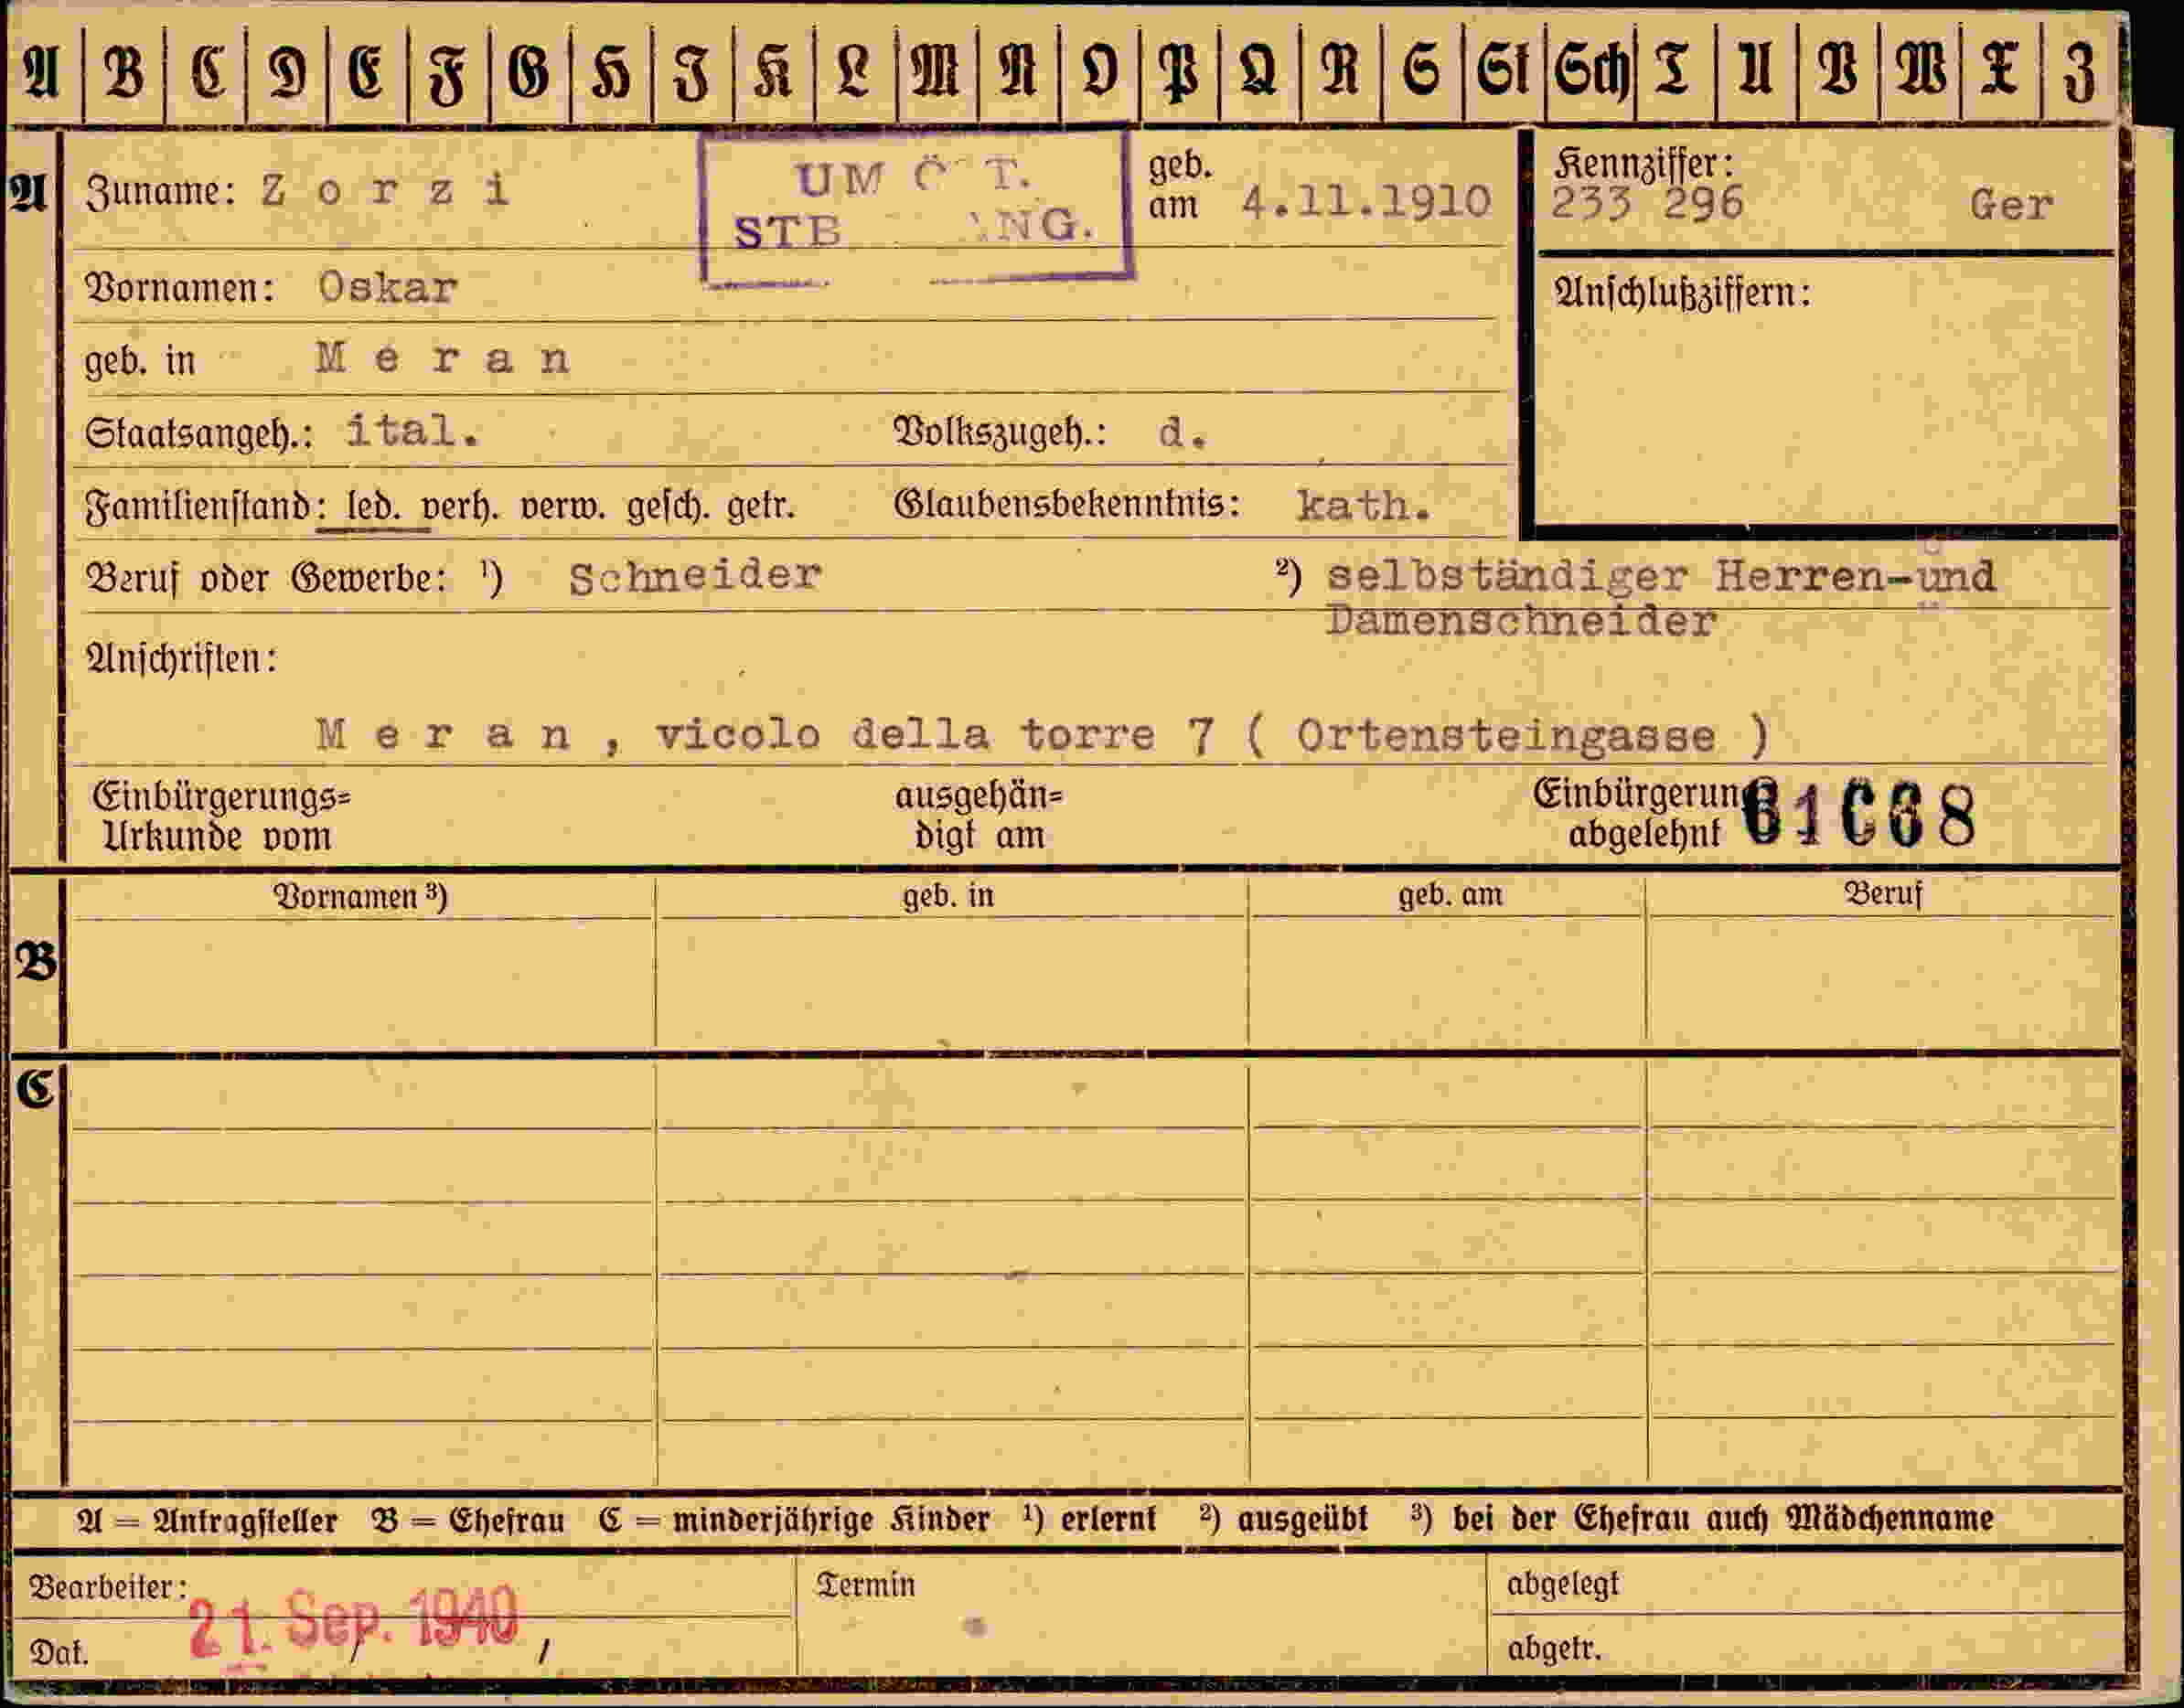 A B C D E F G H I K L M N O P Q R S St Sch T U V W X Z
A Zuname: Z o r z i geb. am 4.11.1910 Kennziffer: 233 296 Ger
UM
STB NG.
Vornamen: Oskar Anschlußziffern:
geb. in M e r a n
Staatsangeh.: ital. Volkszugeh.: d.
Familienstand: led. verh. verw. gesch. getr. Glaubensbekenntnis: kath.
Beruf oder Gewerbe: ¹) Schneider ²) selbständiger Herren-und
Damenschneider
Anschriften:
M e r a n , vicolo della torre 7 ( Ortensteingasse )
Einbürgerungs= ausgehän= Einbürgerung
Urkunde vom digt am abgelehnt
Vornamen ³) geb. in geb. am Beruf
B
C
A = Antragsteller B = Ehefrau C = minderjährige Kinder ¹) erlernt ²) ausgeübt ³) bei der Ehefrau auch Mädchenname
Bearbeiter: Termin abgelegt
21. Sep. 1940
Dat. / / abgetr.